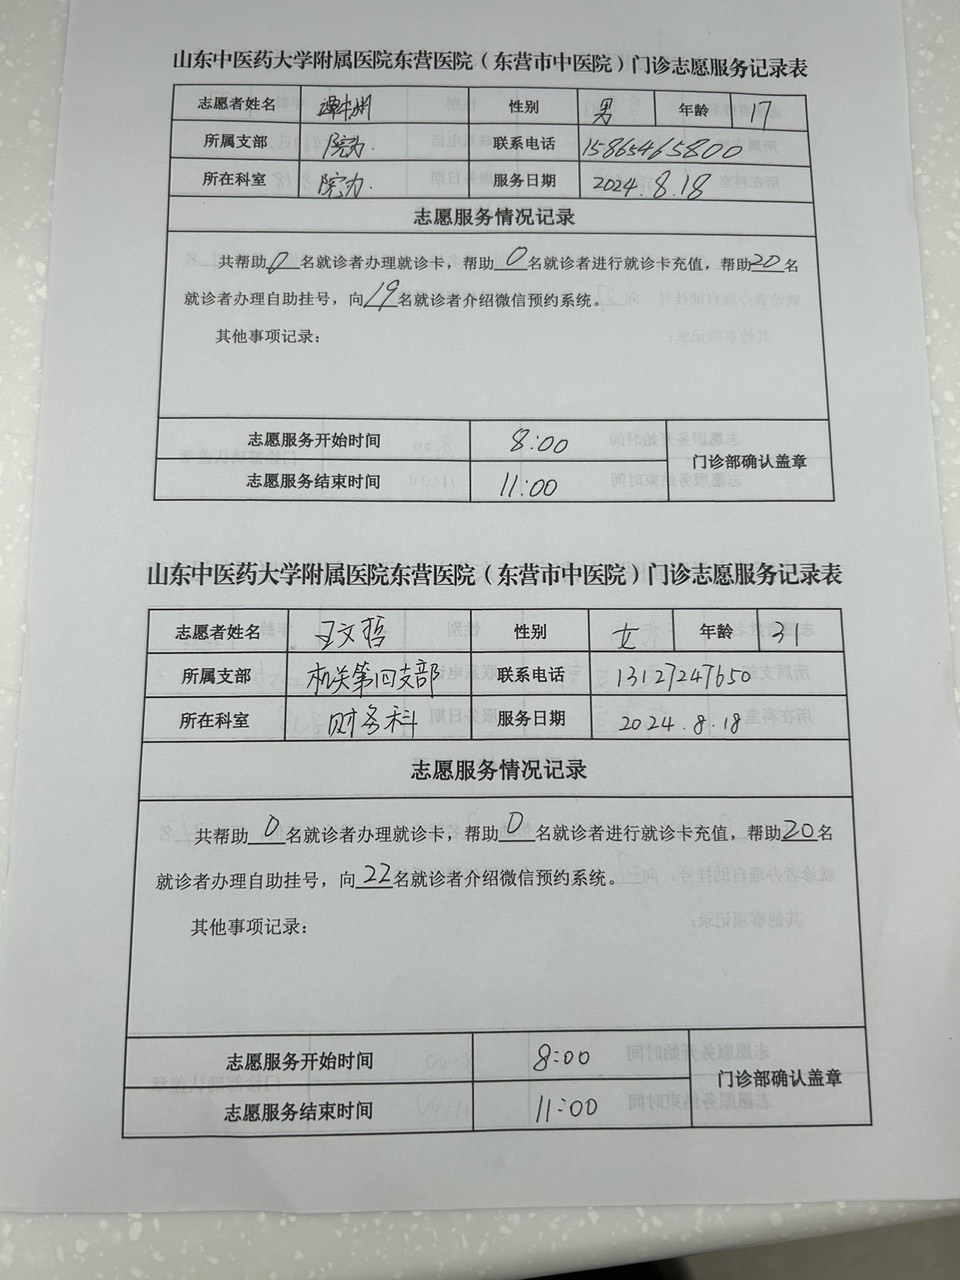 山东中医药大学附属医院东营医院（东营市中医院）门诊志愿服务记录表
志愿者姓名 性别 男 年龄 17
所属支部 院办. 联系电话 15865465800
所在科室 院办. 服务日期 2024.8.18
志愿服务情况记录
共帮助0名就诊者办理就诊卡，帮助0名就诊者进行就诊卡充值，帮助20名
就诊者办理自助挂号，向19名就诊者介绍微信预约系统。
其他事项记录：
志愿服务开始时间 8:00
门诊部确认盖章
志愿服务结束时间 11:00
山东中医药大学附属医院东营医院（东营市中医院）门诊志愿服务记录表
志愿者姓名 王文哲 性别 女 年龄 31
所属支部 机关第四支部 联系电话 13127247650
所在科室 财务科 服务日期 2024.8.18
志愿服务情况记录
共帮助0名就诊者办理就诊卡，帮助0名就诊者进行就诊卡充值，帮助20名
就诊者办理自助挂号，向22名就诊者介绍微信预约系统。
其他事项记录：
志愿服务开始时间 8:00
门诊部确认盖章
志愿服务结束时间 11:00